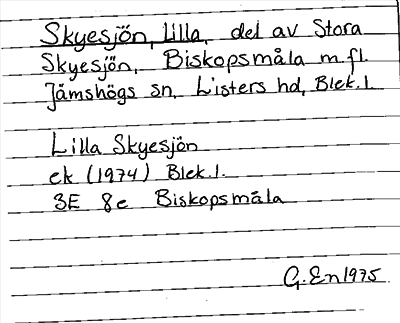 Skyesjön, Lilla, del av Stora
Skyesjön, Biskopsmåla m.fl.
Jämshögs sn, Listers hd, Blek.l.
Lilla Skyesjön
ek (1974) Blek.l.
3E 8e Biskopsmåla
G.En 1975